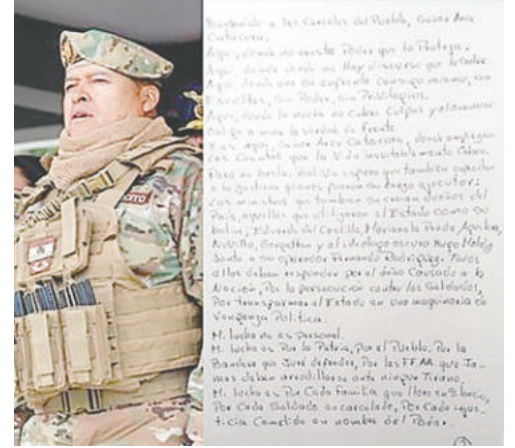 EJÉRCITO
Bienvenido a las Carceles del Pueblo, Señor Arce
Catacora.
Aqui, donde no existe Poder que lo Proteja.
Aqui, donde donde no Hay discurso que lo Salve
Aqui, donde uno se enfrenta Consigo mismo, sin
Escoltas, sin Poder, sin Privilegios.
Aqui, donde la noche no Cubre Culpas y el amanecer
obliga a mirar la verdad de frente.
Y es aqui, Señor Arce Catacora, donde empiegan
las Cuentas que la Vida inevitablemente Cobra.
Pero no Seras, Sol. Un espero que tambien esperen
a la Justicia quienes fueron su brazo ejecutor:
Los ministros que tambien se creian dueños del
País, aquellos que utiligaron al Estado como su
botin; Eduardo del Castillo, Marianela Prada, Aguilera,
Novillo, Gonzales y el ideologo oscuro Hugo Moldiz
Junto a su operador Fernando Rodriguez. Todos
ellos deben responder por el daño Causado a la
Nación, Por la persecución contra los Soldados,
Por transformar el Estado en una maquinaria de
Venganza Politica.
Mi lucha no es personal.
Mi lucha es Por la Patria, Por el Pueblo, Por la
Bandera que Juré defender, Por las FF.AA. que Ja-
mas deben arrodillarse ante ningun Tirano.
Mi lucha es Por Cada Familia que lloro en Silencio,
Por Cada Soldado encarcelado, Por Cada injus-
ticia Cometida en nombre del Poder.